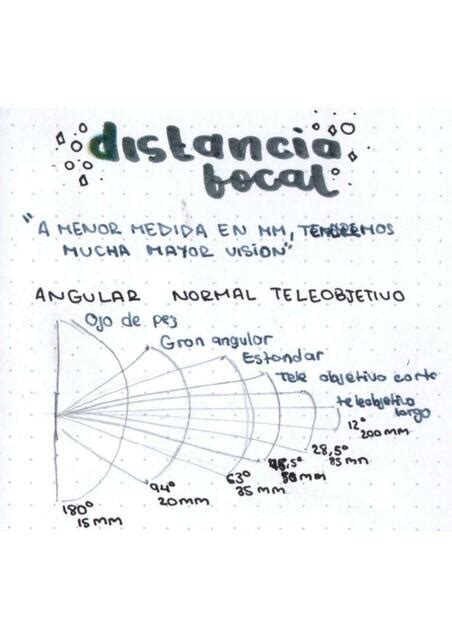 distancia
focal
"A MENOR MEDIDA EN MM, TENDREMOS
MUCHA MAYOR VISION"
ANGULAR NORMAL TELEOBJETIVO
Ojo de pez
Gran angular
Estandar
Tele objetivo corto
teleobjetivo
largo
12°
200 mm
28,5°
85 mm
46,5°
50 mm
63°
35 mm
94°
20 mm
180°
15 mm